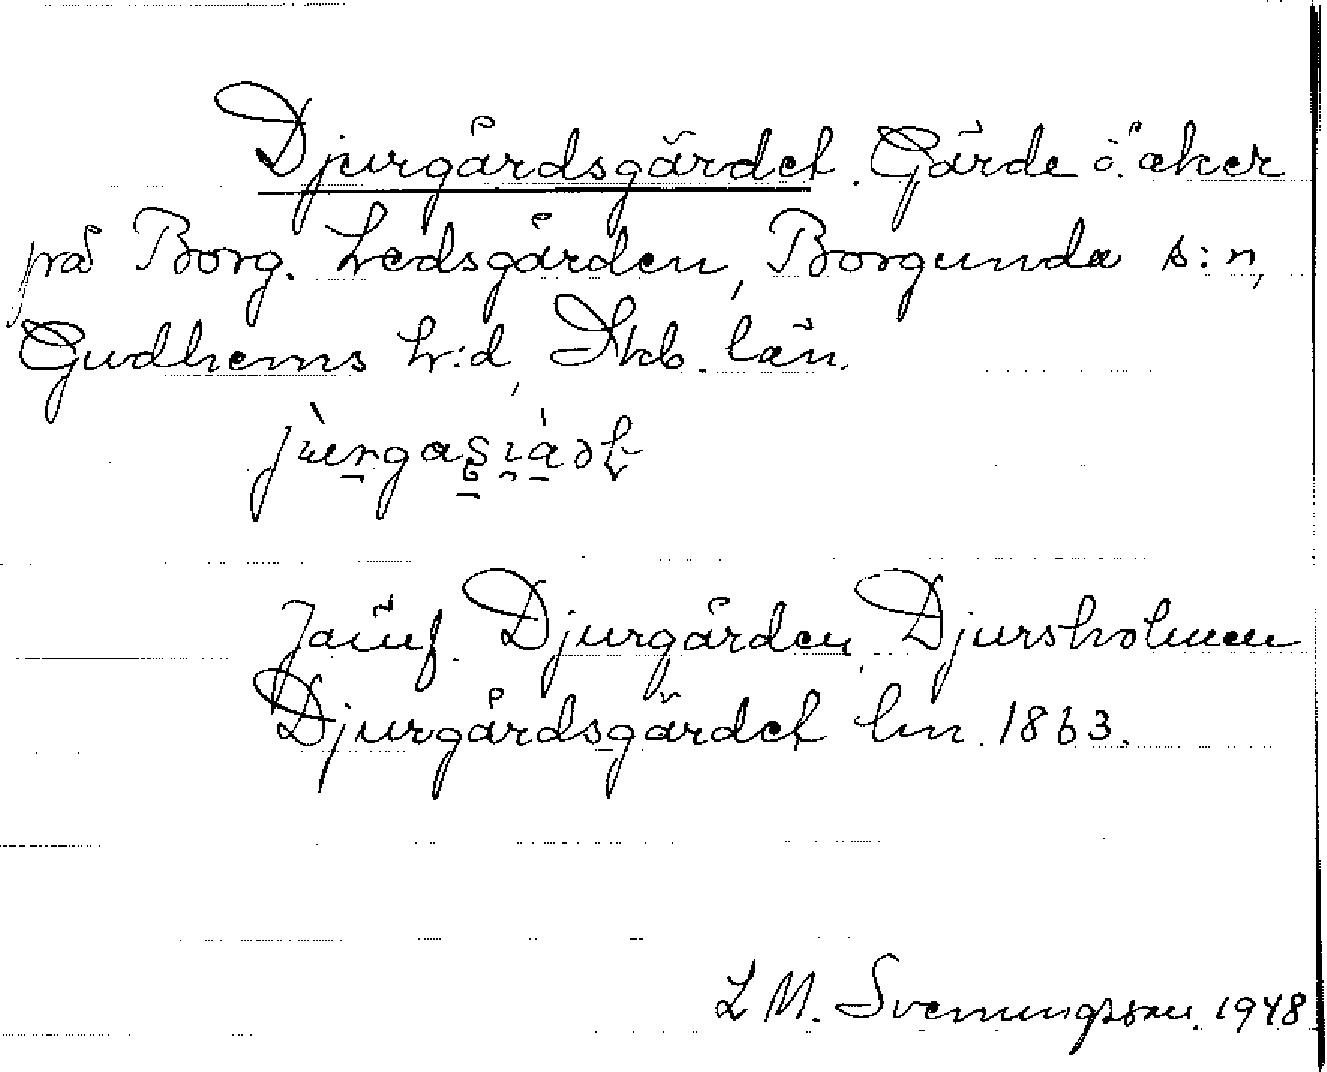 Djurgårdsgärdet. Gärde o. åker
på Borg. Ledsgården, Borgunda s:n,
Gudhems h:d, Skb. län.
Jämf. Djurgården, Djursholmen
Djurgårdsgärdet lm. 1863.
L M. Svenungsson. 1948